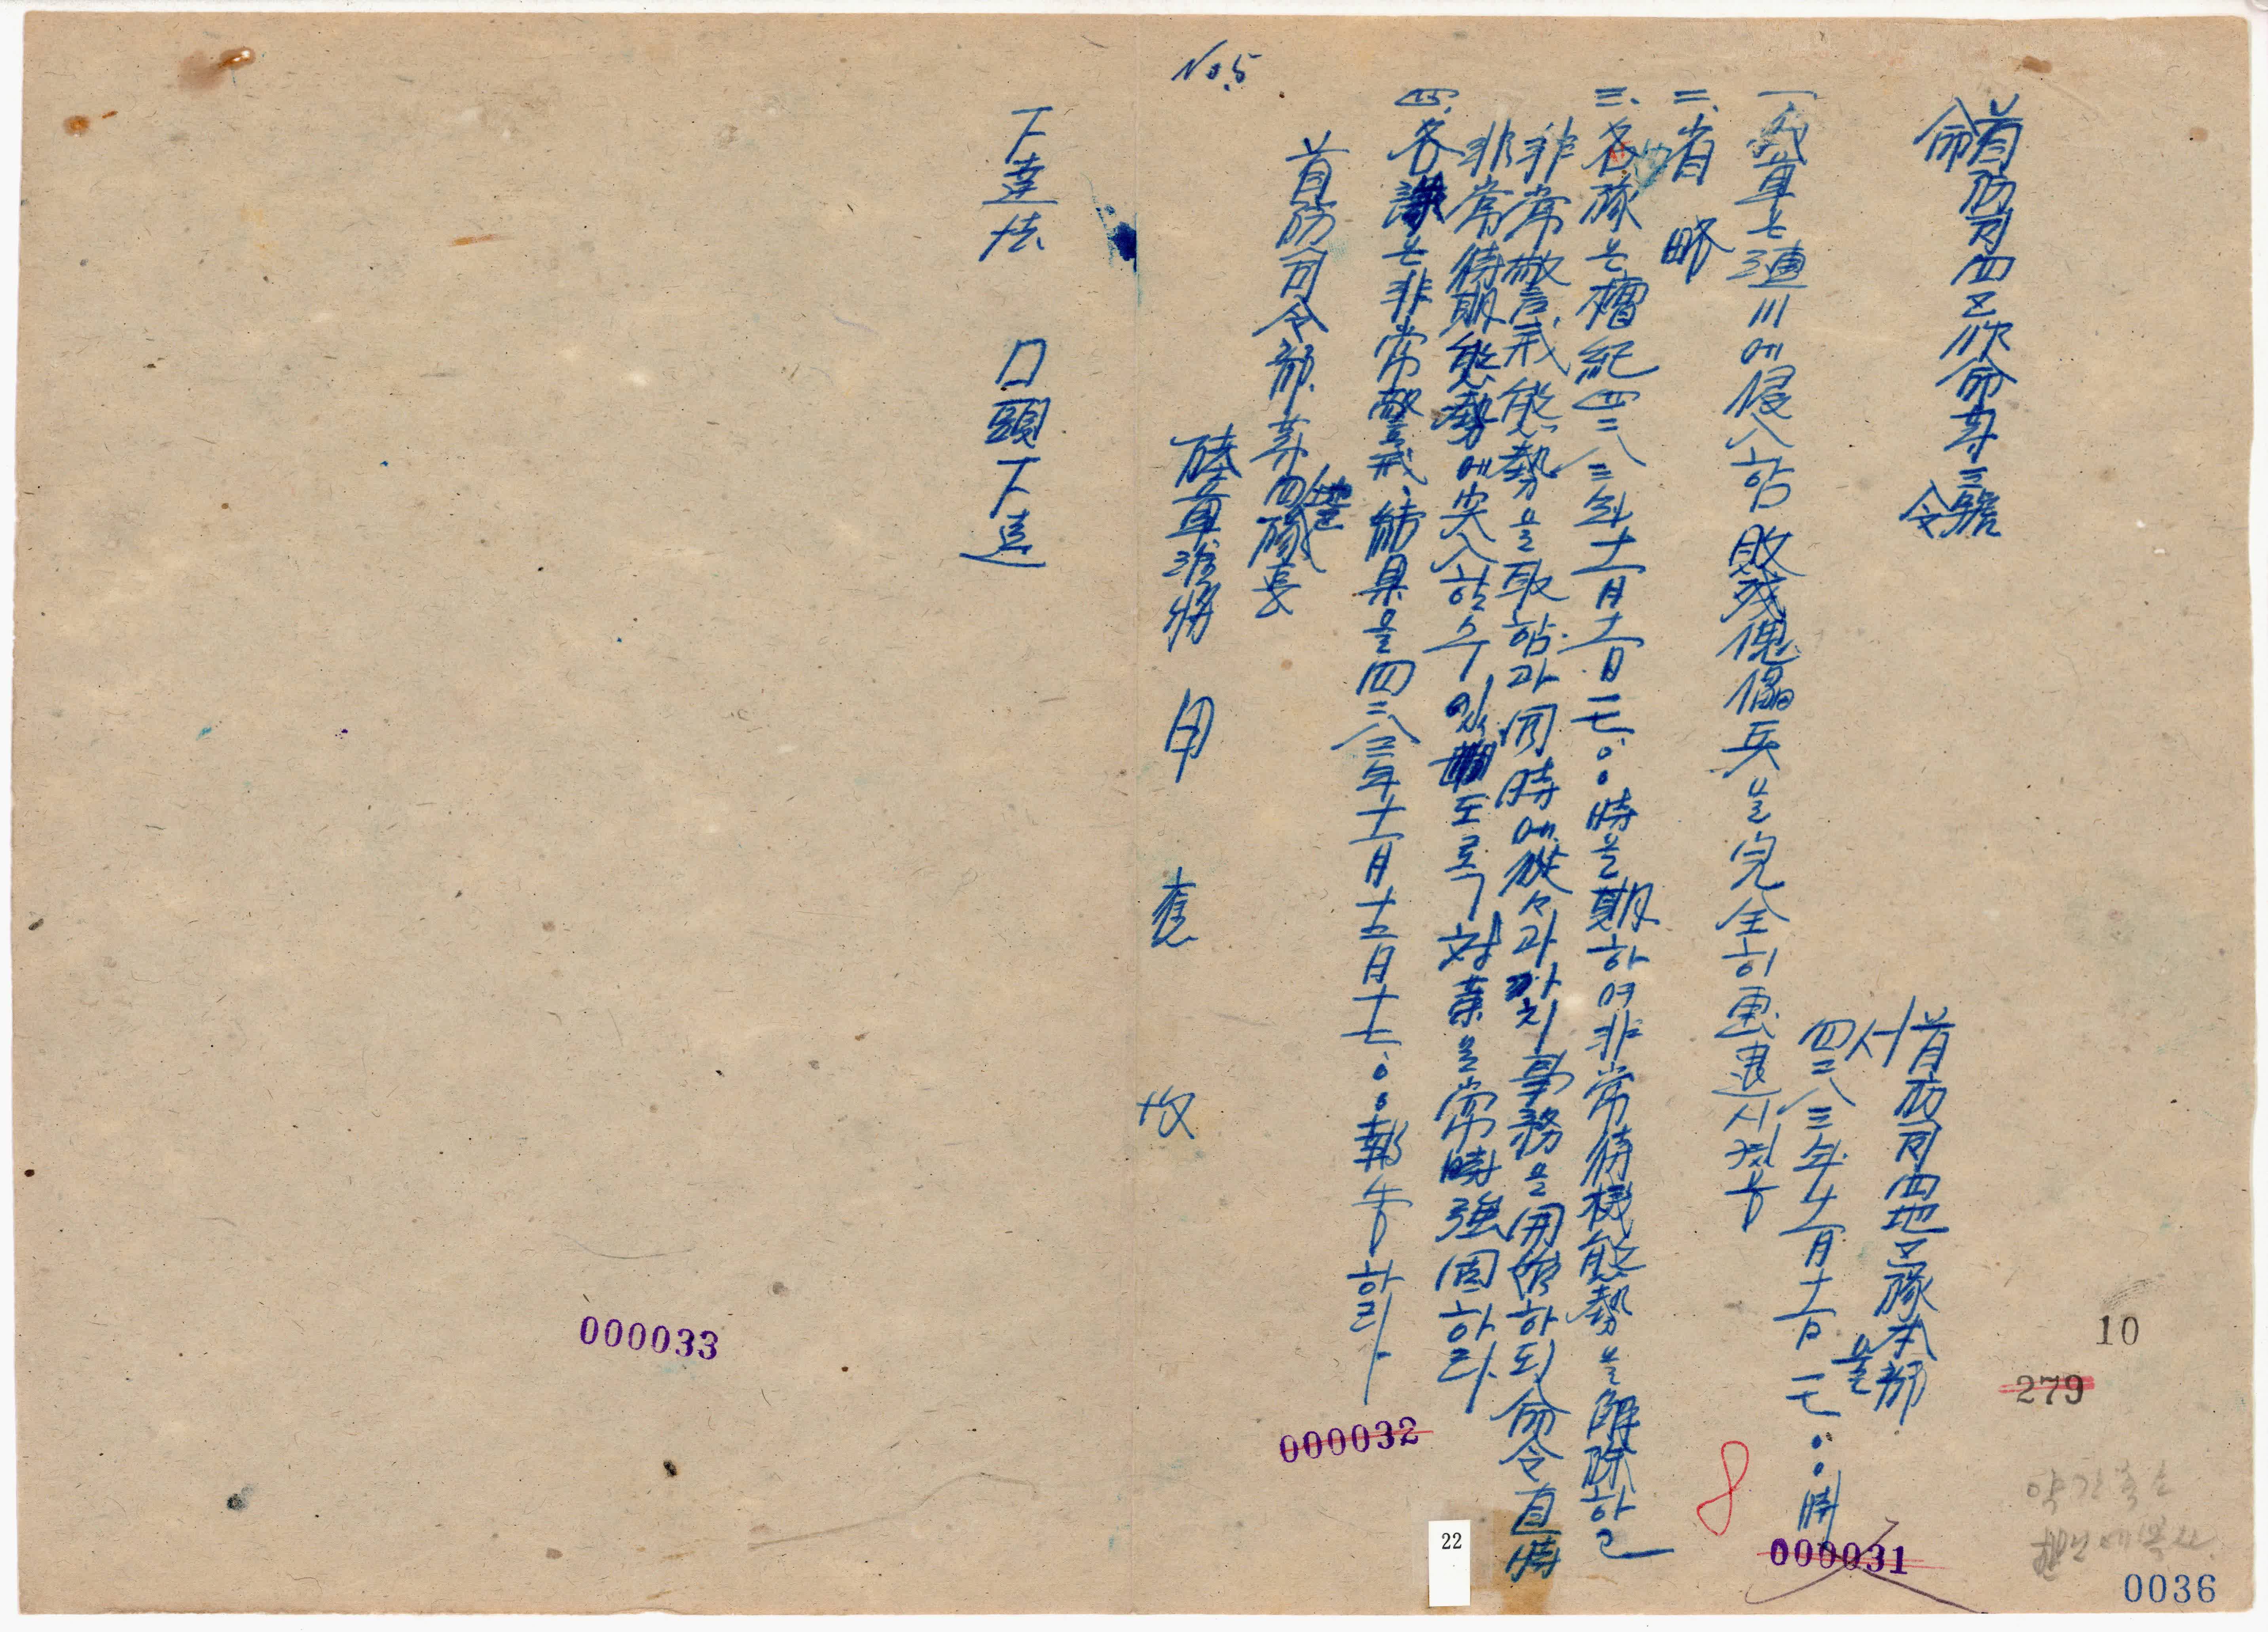 No.5
首防司四区作命第三號
命 令
首防司四地區隊本部
서 울
四二八三年十一月十一日 一七〇〇時
一. 我軍은 漣川에 侵入한 敗残傀儡兵을 完全히 擊退시켰음
二. 省略
三. 各隊는 檀紀四二八三年十一月十一日 一七.〇〇時을 期하여 非常待機態勢을 解除하고
非常警戒態勢을 取함과 同時에 從々과 가치 事務을 開始하되 命令直時
非常待期態勢에 突入할 수 있도록 対策을 常時強固하라
四. 各隊는 非常警戒結果을 四二八三年十一月十五日 十七.〇〇 報告하라
首防司令部 第四地區隊長
陸軍准將
下達法 口頭下達
10
279
8
000031
000032
000033
22
0036